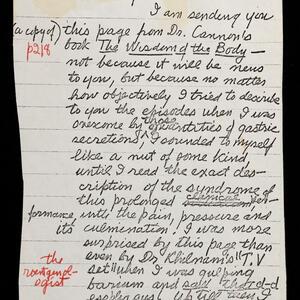 I am sending you
(a copy of) this page from Dr. Cannon's
p218
book The Wisdom of the Body —
not because it will be news
to you, but because no matter
how objectively I tried to describe
to you the episodes when I was
overcome by those quantities of gastric
secretions, I sounded to myself
like a nut of some kind,
until I read the exact des-
cription of the syndrome of
this prolonged chemical per-
formance until the pain, pressure and
its culmination. I was more
surprised by this page than
even by Dr. "T.V
the
roentgenol-
ogist
set" when I was gulping
barium and said
esophagus. Up till then I